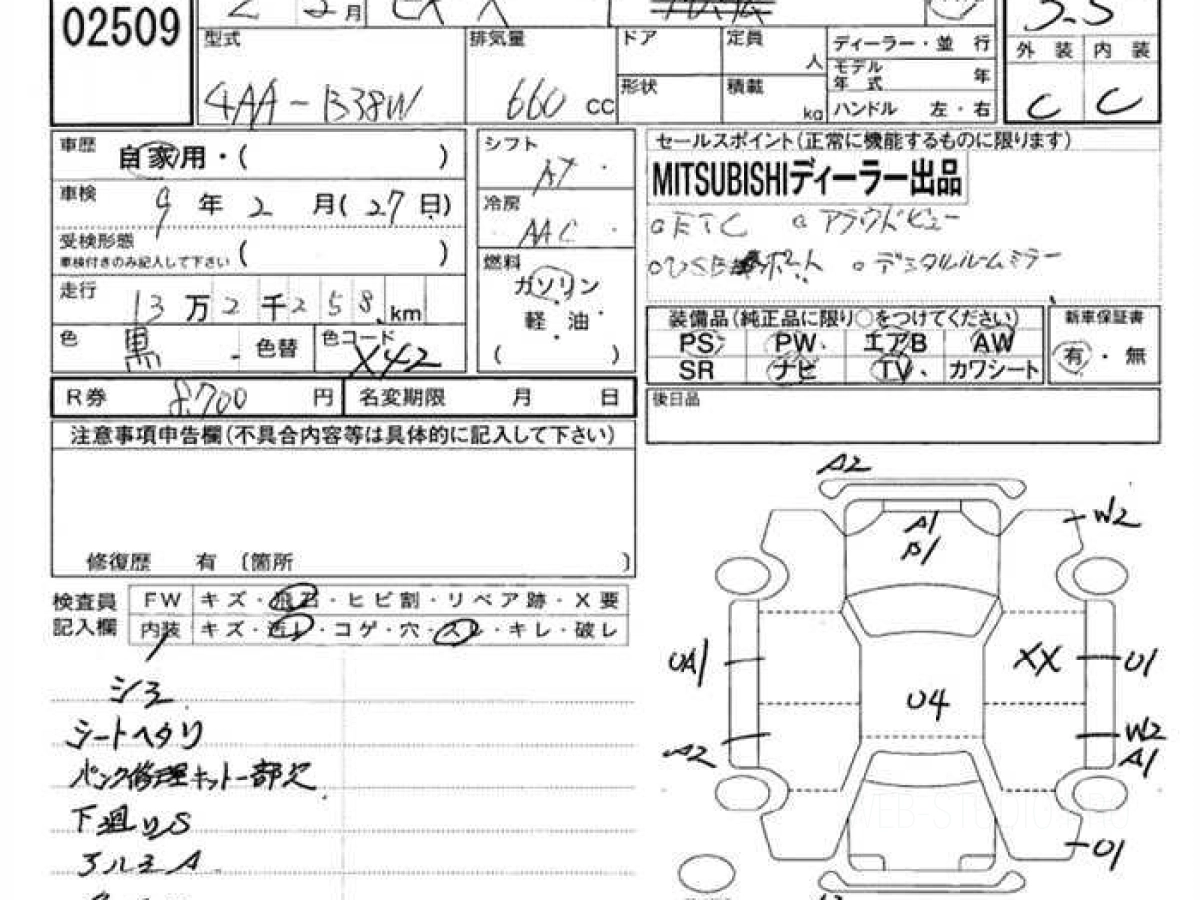 02509
2 月
3.5
型式 排気量 ドア 定員 人 ディーラー・並 行
モデル年式 年
外装 内装
4AA-B38W 660 cc 形状 積載 kg ハンドル 左・右
C C
車歴 自家用・( )
シフト AT
セールスポイント(正常に機能するものに限ります)
MITSUBISHIディーラー出品
車検 9 年 2 月(27日)
冷房 AAC
○ETC ○アラウンドビュー
受検形態
車検付きのみ記入して下さい ( )
○USBポート ○デジタルルームミラー
走行 13万2千258km
燃料
ガソリン・
軽 油・
( )
装備品(純正品に限り○をつけてください) 新車保証書
PS PW エアB AW
有・無
SR ナビ TV カワシート
色 黒 色替 色コード X42
R券 8,700 円 名変期限 月 日
後日品
注意事項申告欄(不具合内容等は具体的に記入して下さい)
修復歴 有 〔箇所 〕
検査員 FW キズ・飛石・ヒビ割・リペア跡・X要
記入欄 内装 キズ・汚レ・コゲ・穴・スレ・キレ・破レ
シミ
シートヘタリ
パンク修理キット一部欠
下廻りS
アルミA
A2
A1
W2
UA1
XX
U1
U4
A2
W2
A1
U1